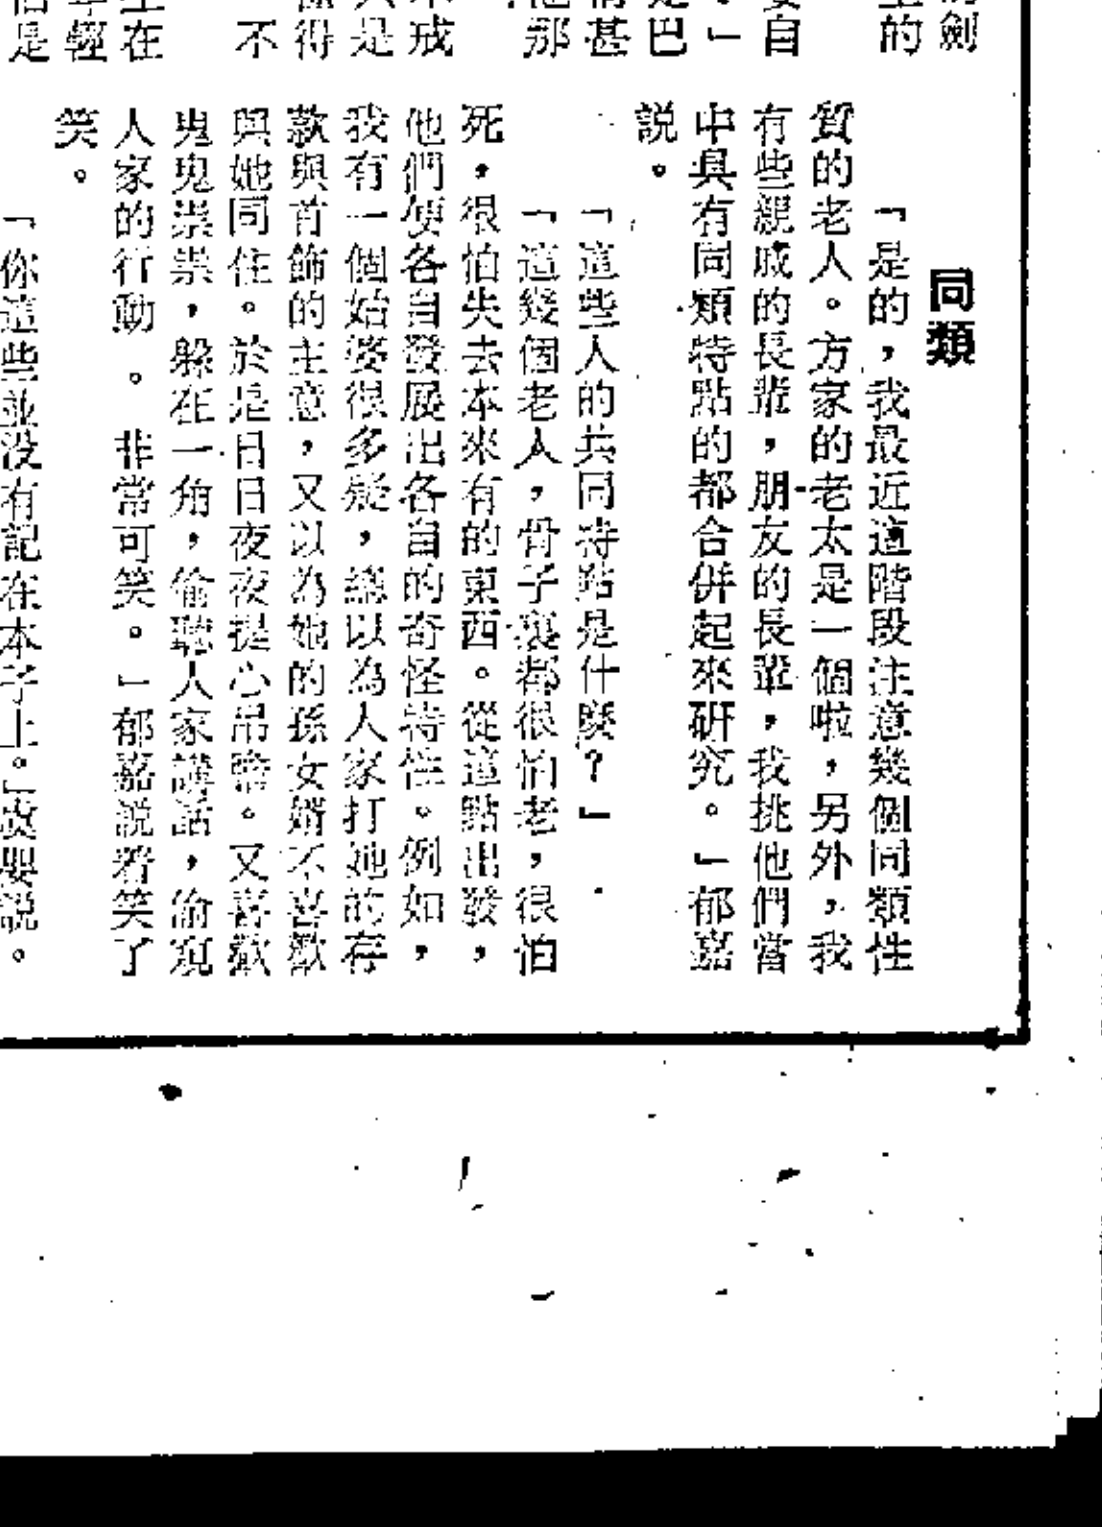 同類
「是的，我最近這階段注意幾個同類性
質的老人。方家的老太是一個啦，另外，我
有些親戚的長輩，朋友的長輩，我挑他們當
中具有同類特點的都合併起來研究。」郁嘉
説。
「這些人的共同特點是什麼？」
「這幾個老人，骨子裏都很怕老，很怕
死，很怕失去本來有的東西。從這點出發，
他們便各自發展出各自的奇怪特性。例如，
我有一個始婆很多疑，總以為人家打她的存
款與首飾的主意，又以為她的孫女婿不喜歡
與她同住。於是日日夜夜提心吊膽。又喜歡
鬼鬼祟祟，躲在一角，偷聽人家講話，偷窺
人家的行動。非常可笑。」郁嘉説着笑了
笑。
「你這些並没有記在本子上。」説。